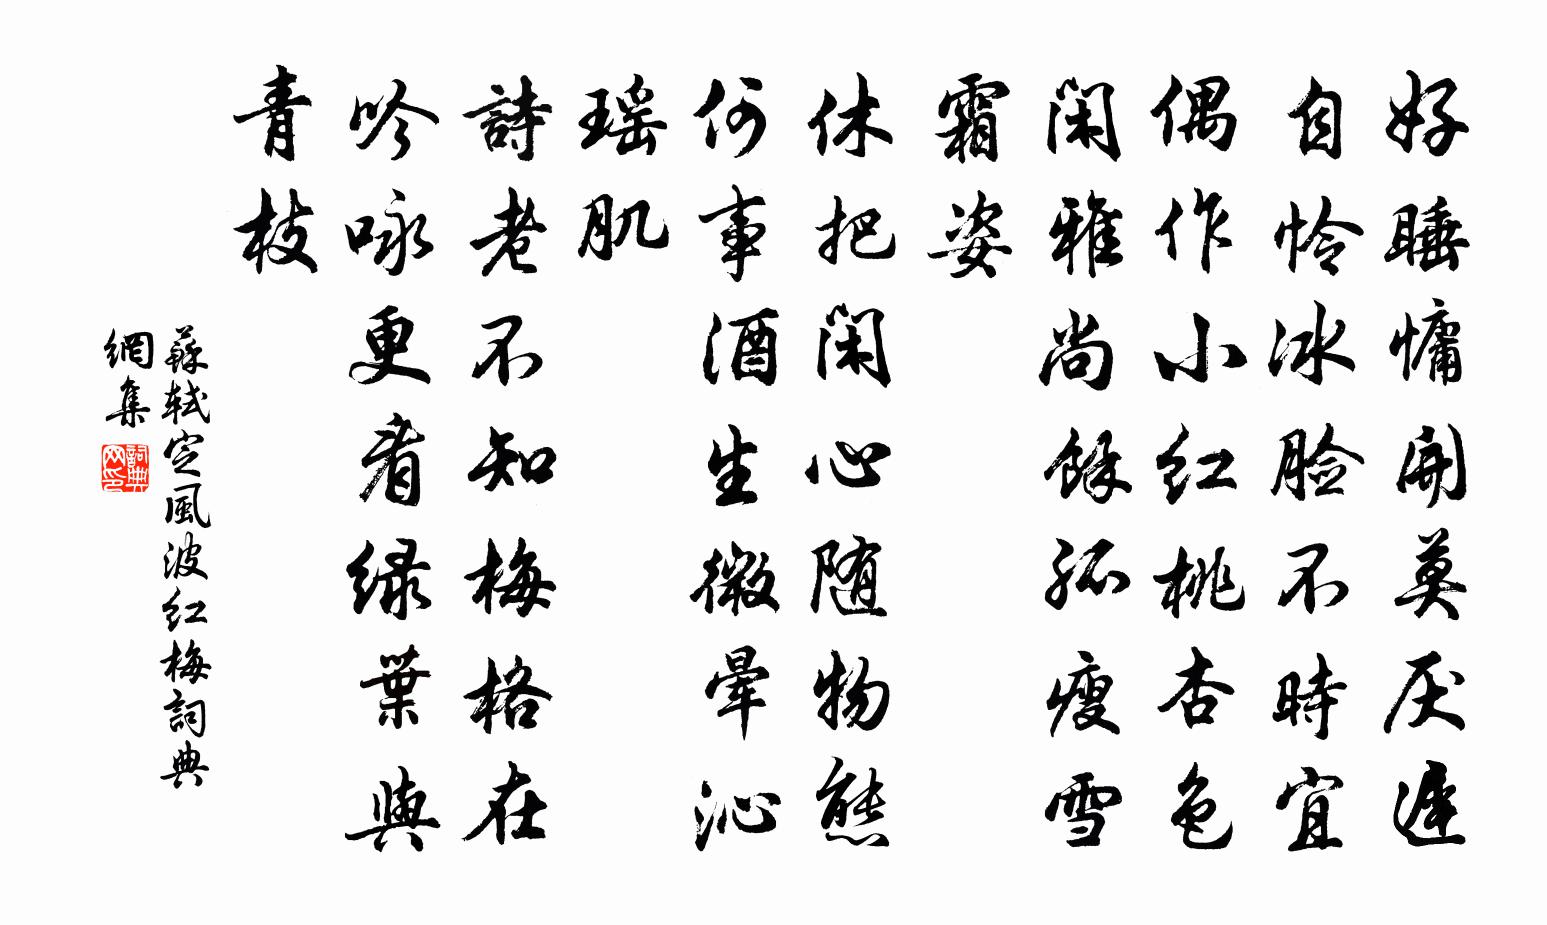 好睡慵開莫厌遲
自怜冰脸不時宜
偶作小红桃杏色
闲雅尚餘孤瘦雪
霜姿
休把闲心随物態
何事酒生微暈沁
瑶肌
詩老不知梅格在
吟咏更看绿葉與
青枝
蘇轼定風波红梅詞典
網集
詞典网印